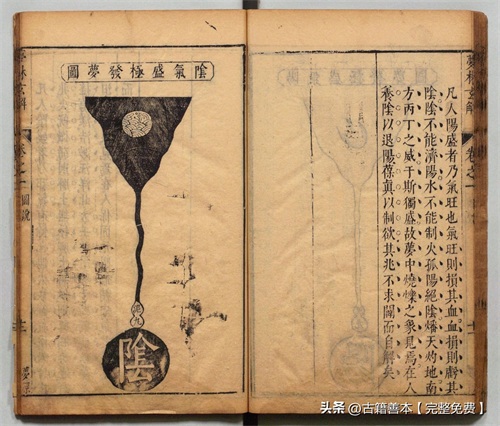 夢林玄解
卷之一
凡人陽盛者乃氣旺也氣旺則損其血血損則虧其
陰陰不能濟陽水不能制火孤陽絕陰燔天灼地南
方丙丁之威于斯獨盛故夢中燒爍之象見焉在人
養陰以退陽葆真以制欲其兆不求而自解矣
陰氣盛極發夢圖
陰
林玄解
卷之一
圖說
头条 @古籍善本【完整免费】